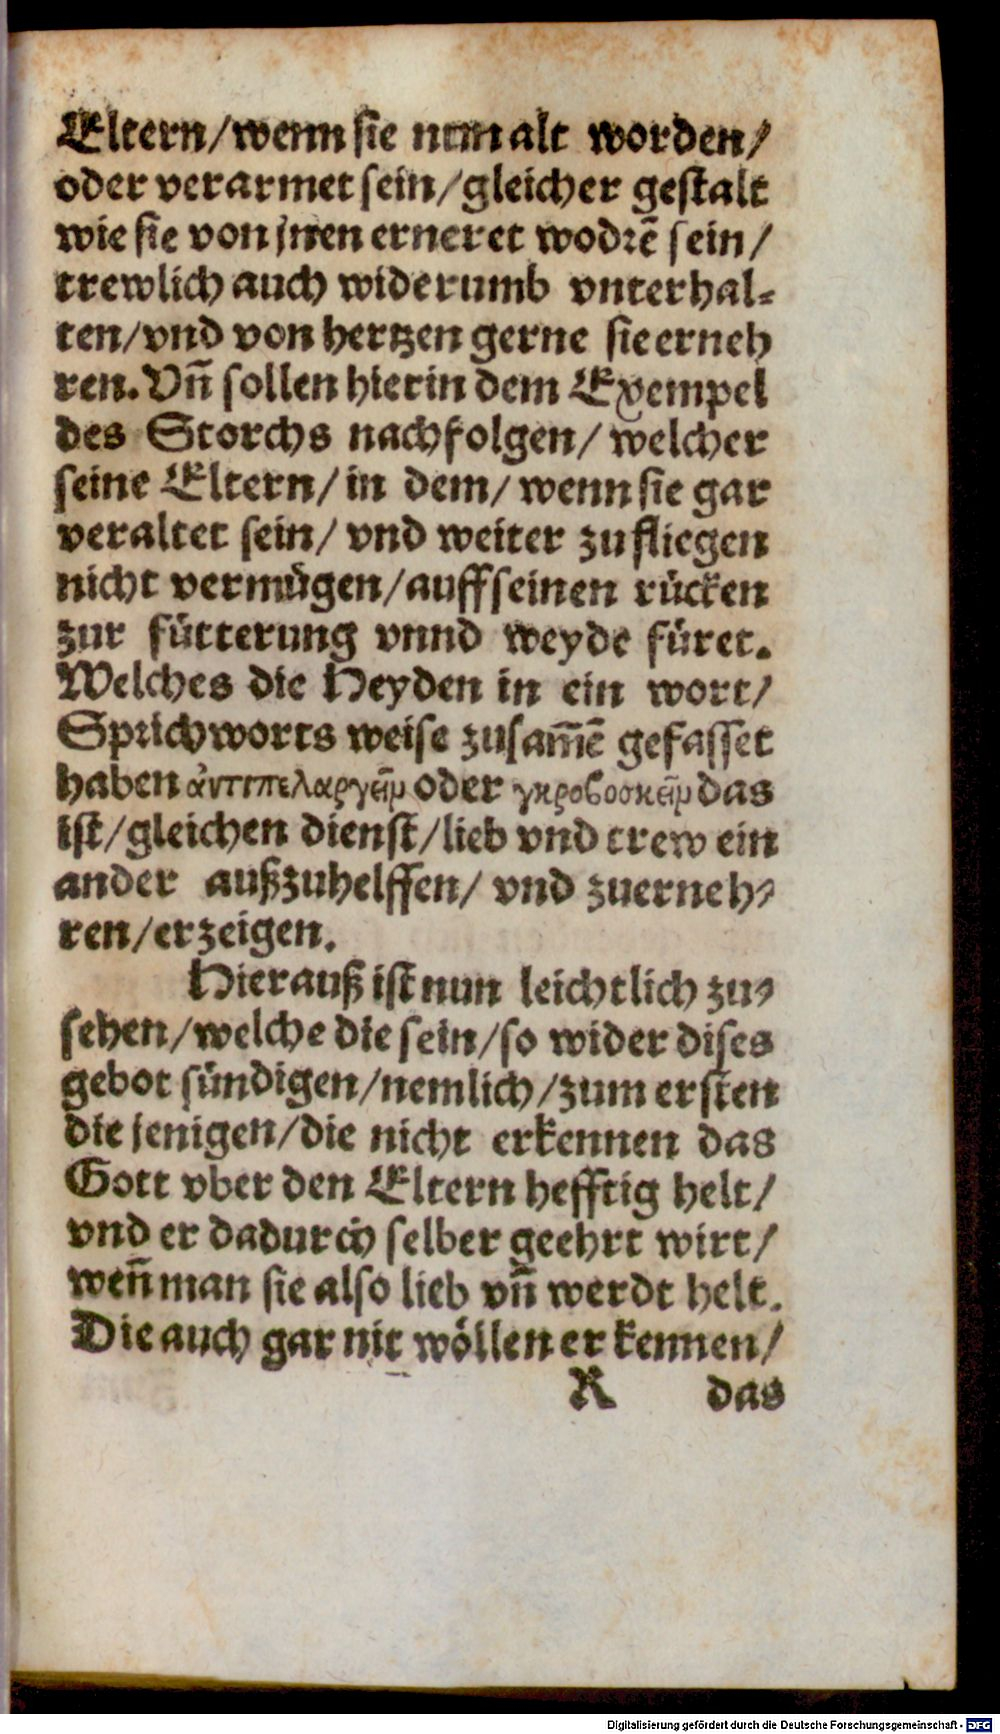 Eltern/wenn sie nun alt worden/
oder verarmet sein/gleicher gestalt
wie sie von jnen erneret wodrē sein/
trewlich auch widerumb vnterhal-
ten/vnd von hertzen gerne sie erneh
ren. Vñ sollen hierin dem Exempel
des Storchs nachfolgen/ welcher
seine Eltern/ in dem/ wenn sie gar
veraltet sein/ vnd weiter zu fliegen
nicht vermügen/auff seinen rücken
zur fütterung vnnd weyde füret.
Welches die Heyden in ein wort/
Sprichworts weise zusam̄ē gefasset
haben ἀντιπελαργεῖν oder γηροβοσκεῖν das
ist/gleichen dienst/lieb vnd trew ein
ander außzuhelffen/ vnd zuerneh-
ren/erzeigen.
Hierauß ist nun leichtlich zu-
sehen/welche die sein/so wider dises
gebot sündigen/nemlich/zum ersten
die jenigen/die nicht erkennen das
Gott vber den Eltern hefftig helt/
vnd er dadurch selber geehrt wirt/
weñ man sie also lieb vñ werdt helt.
Die auch gar nit wöllen erkennen/
R das
Digitalisierung gefördert durch die Deutsche Forschungsgemeinschaft - DFG